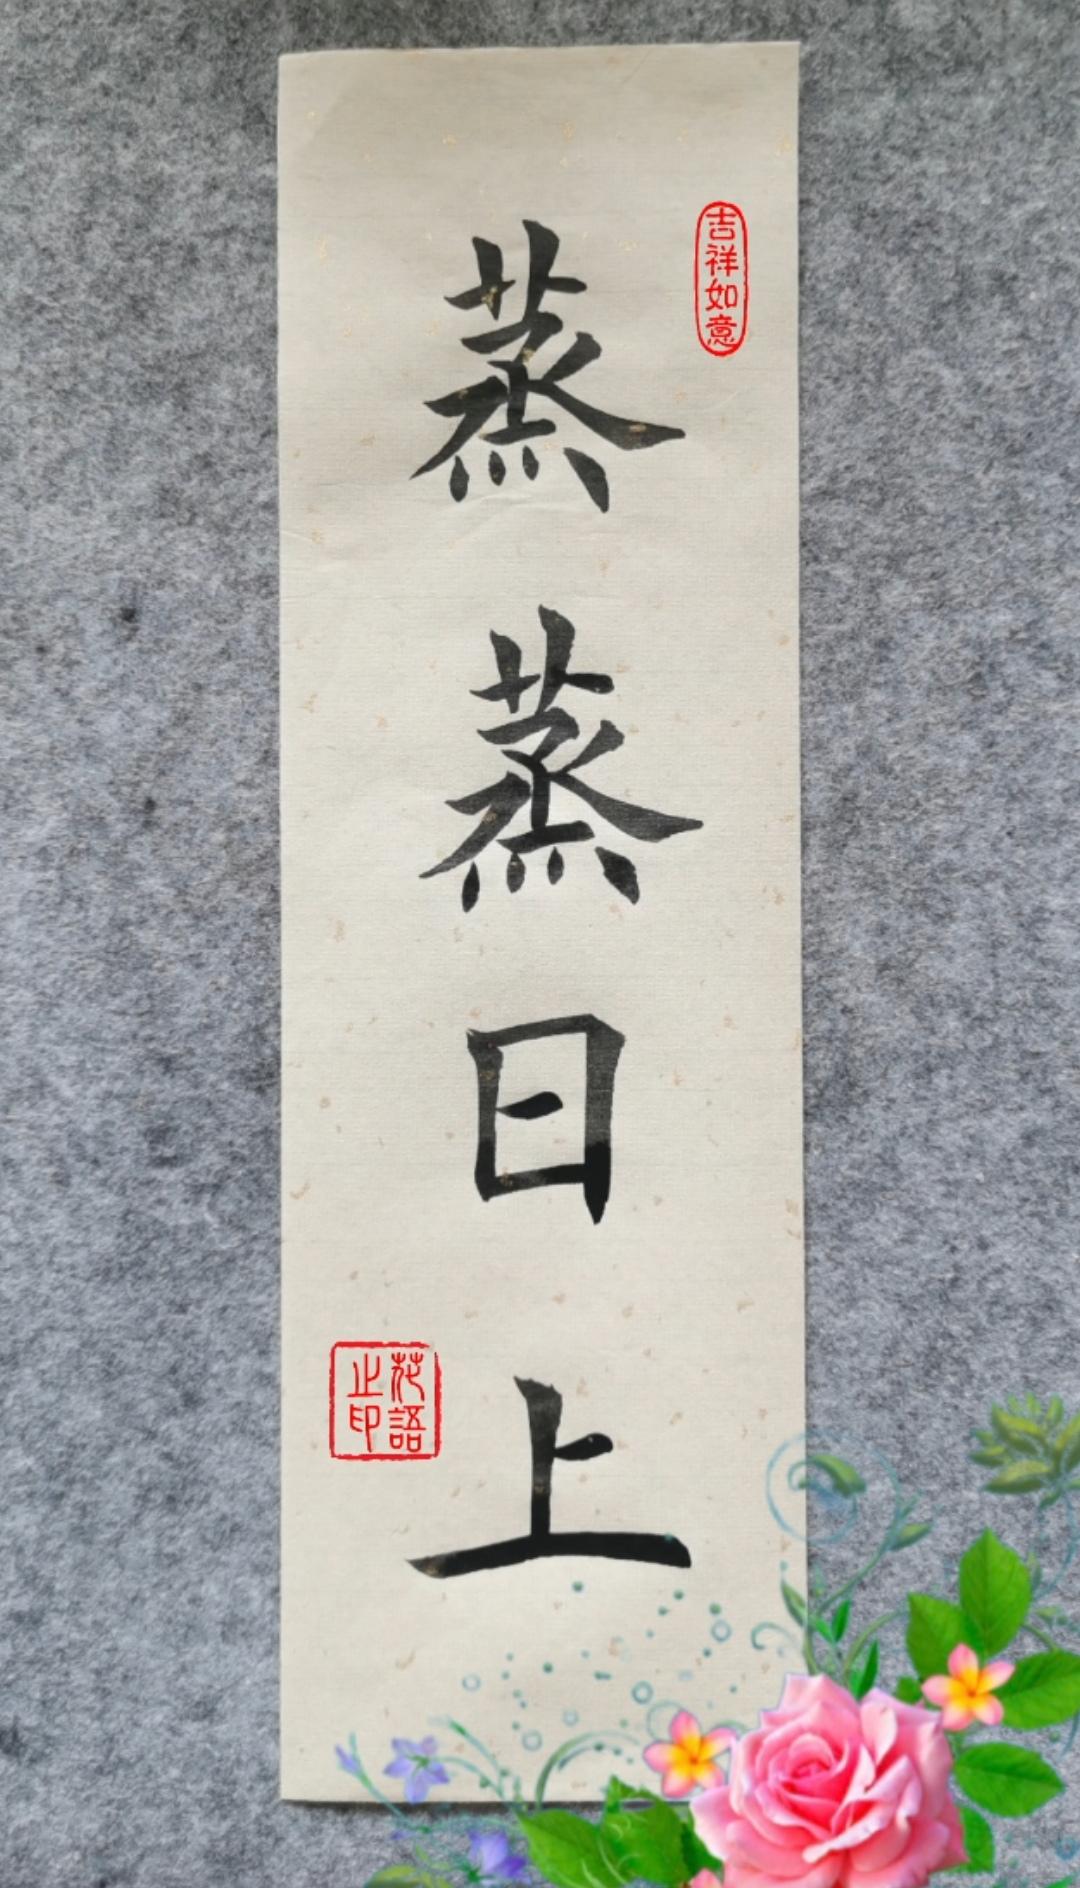 吉祥如意
蒸蒸日上
花語
止印